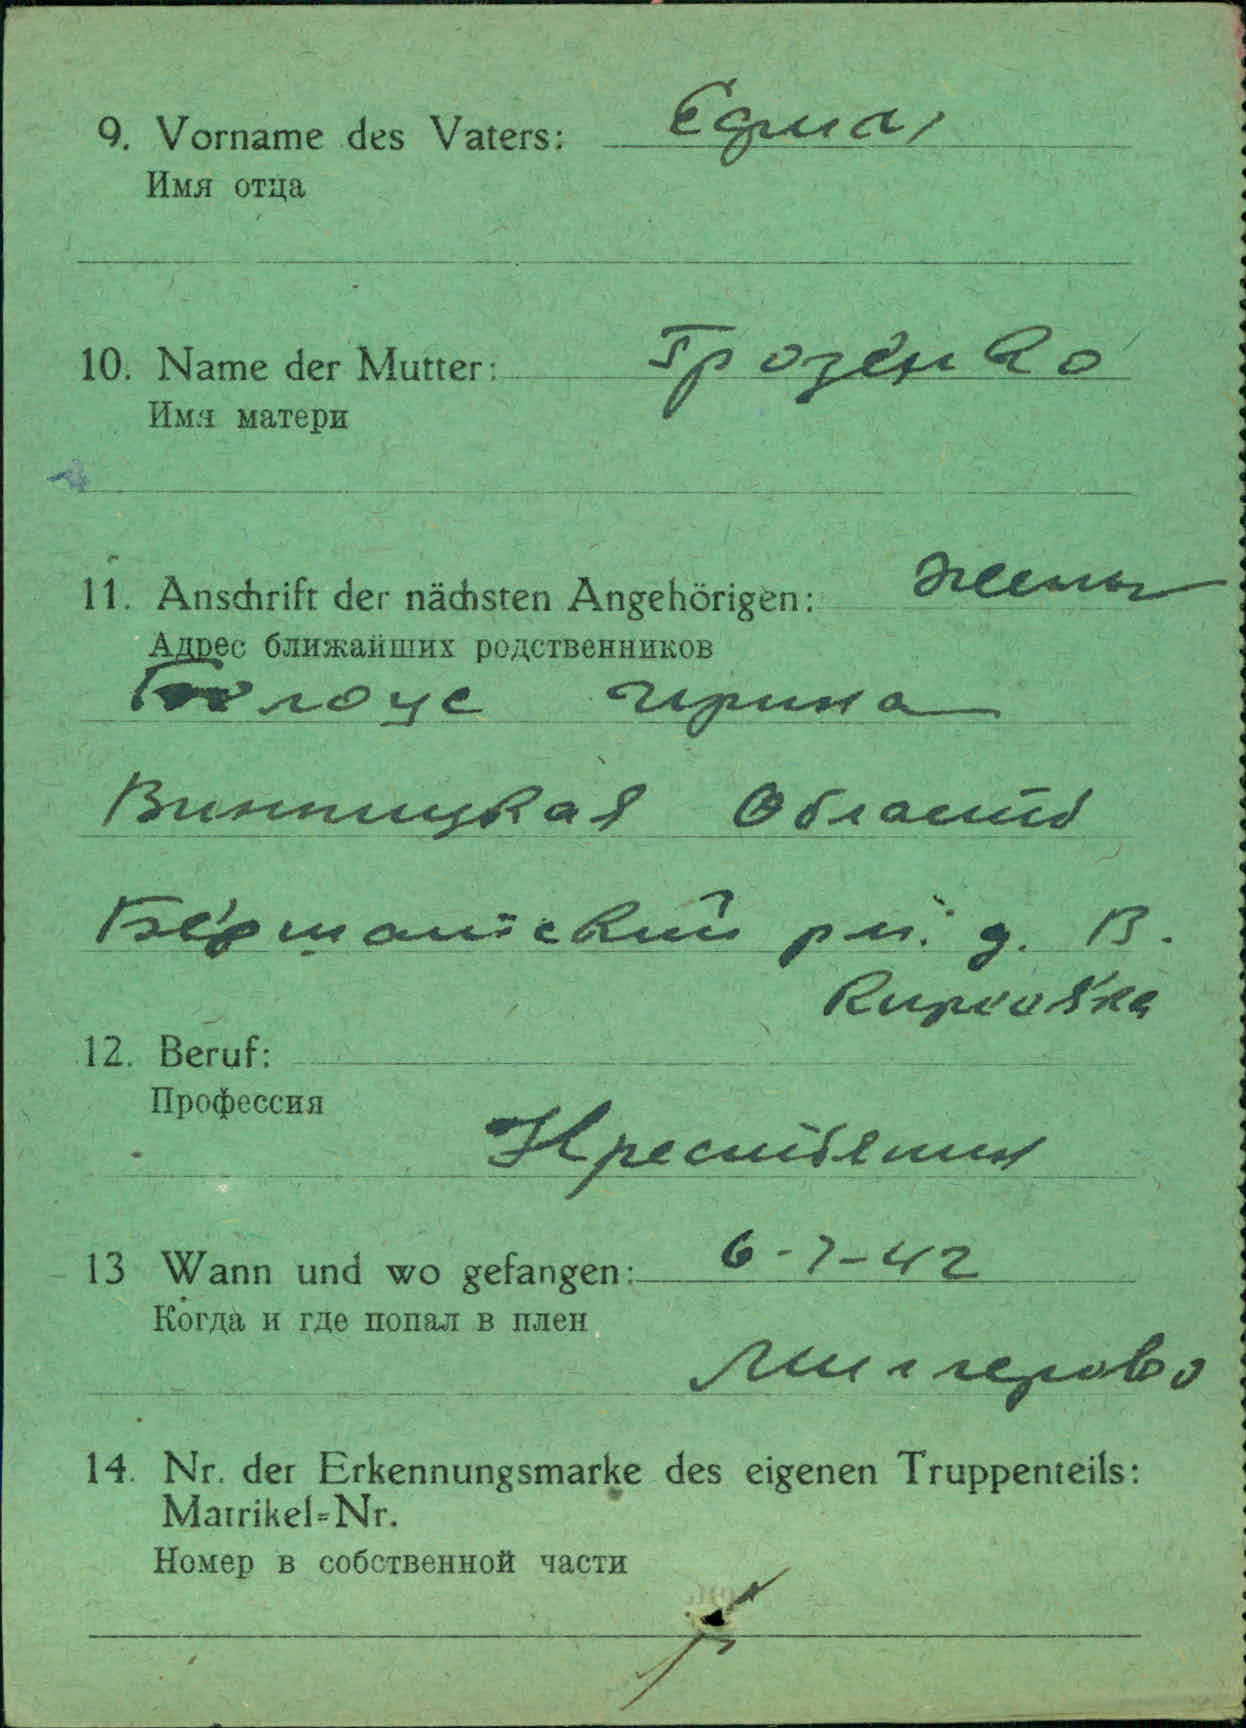 9. Vorname des Vaters: Ефим
Имя отца
10. Name der Mutter: Грозенко
Имя матери
11. Anschrift der nächsten Angehörigen: жены
Адрес ближайших родственников
Ирина
Винницкая Область
Бершатский рн. д. В.
12. Beruf:
Профессия
Крестьянин
13 Wann und wo gefangen: 6-7-42
Когда и где попал в плен
Миллерово
14. Nr. der Erkennungsmarke des eigenen Truppenteils:
Matrikel=Nr.
Номер в собственной части